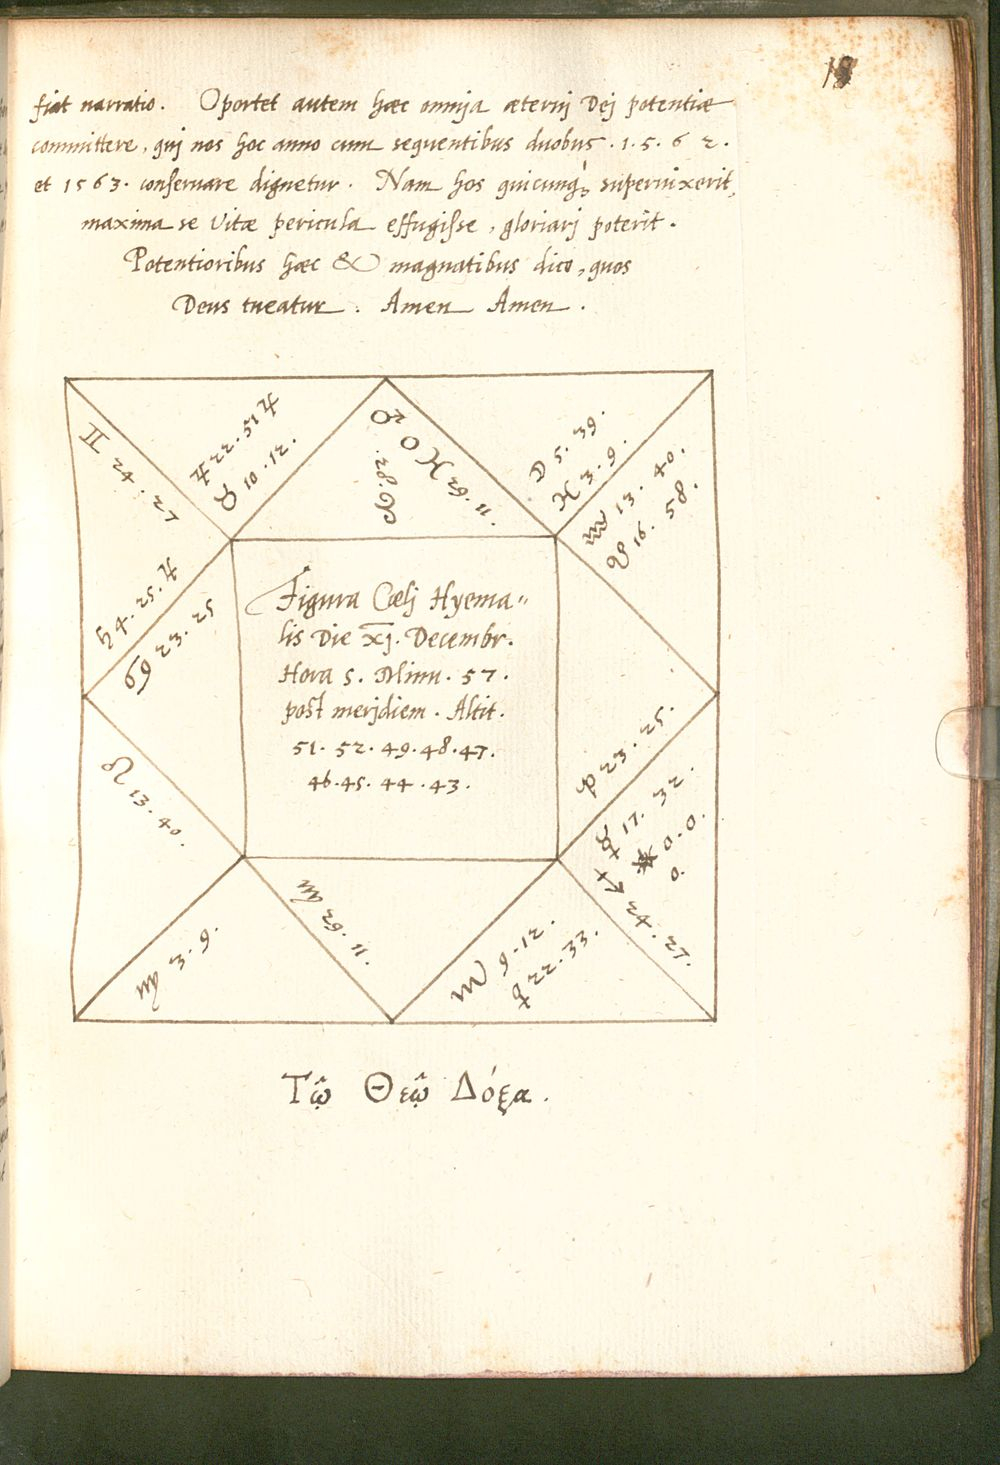 fiat narratio. Oportet autem hæc omnija æternj Dej potentiæ
committere, quj nos hoc anno cum sequentibus duobus. 1. 5. 6 2.
et 1563. conseruare dignetur. Nam hos quicunq; superuixerit,
maxima se vitæ pericula effugisse, gloriarj poterit.
Potentioribus hæc & magnatibus dico, quos
Deus tueatur. Amen Amen.
♊ 24. 27
♃ 22. 51 ♃
♉ 10. 12.
♂ 0 ♓ 29. 11.
28.
☽ 5. 39.
♓ 3. 9.
♒ 13. 40.
16. 58.
♄ 4. 25. ♃
♋ 23. 25
Figura Cœlj Hyema"
lis Die xj. Decembr.
Hora 5. Minu. 57.
post merjdiem. Altit.
51. 52. 49. 48. 47.
46. 45. 44. 43.
♌ 13. 40.
23. 25.
☿ 17. 32.
0. 0.
0.
♐ 24. 27.
♍ 3. 9.
♍ 29. 11.
♏ 9. 12.
♀ 22. 33.
Τῷ Θεῷ Δόξα.